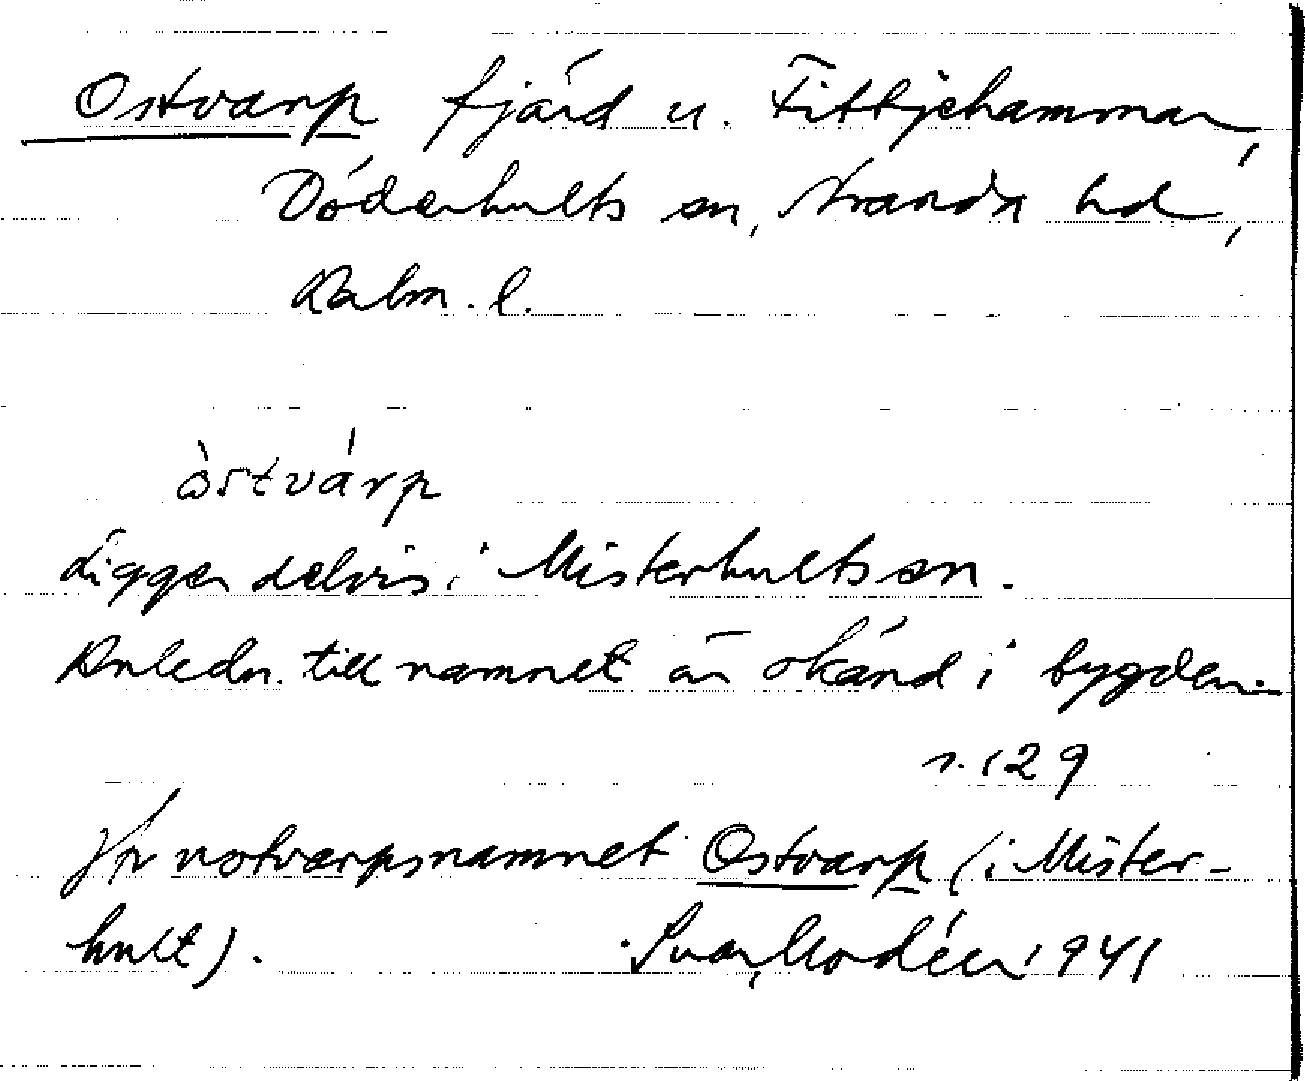 Ostvarp fjärd u. Fittjehammar,
Döderhults sn, Stranda hd,
Kalm. l.
òstvárp
Ligger delvis i Misterhults sn.
Anledn. till namnet är okänd i bygden.
s. 129
Jfr notvarpsnamnet Ostvarp (i Mister-
hult).
Ivar Modéer 1941